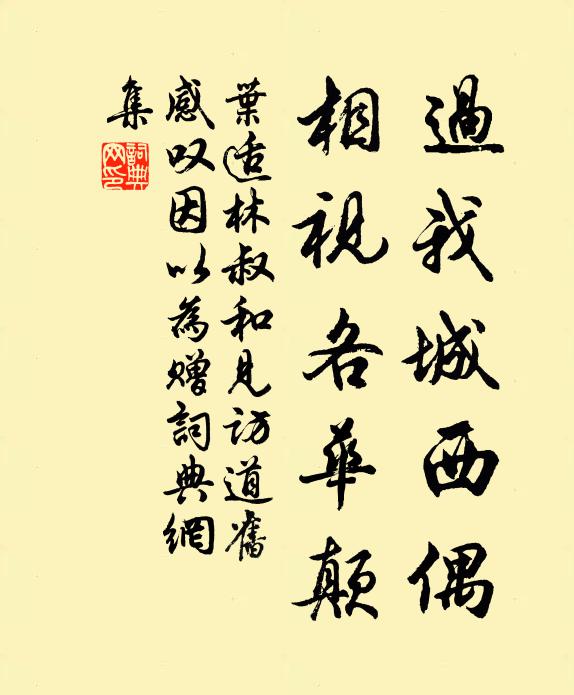 過我城西偶
相視各華顛
葉适林叔和見訪道舊
感叹因以為贈詞典網
集
詞典
网印